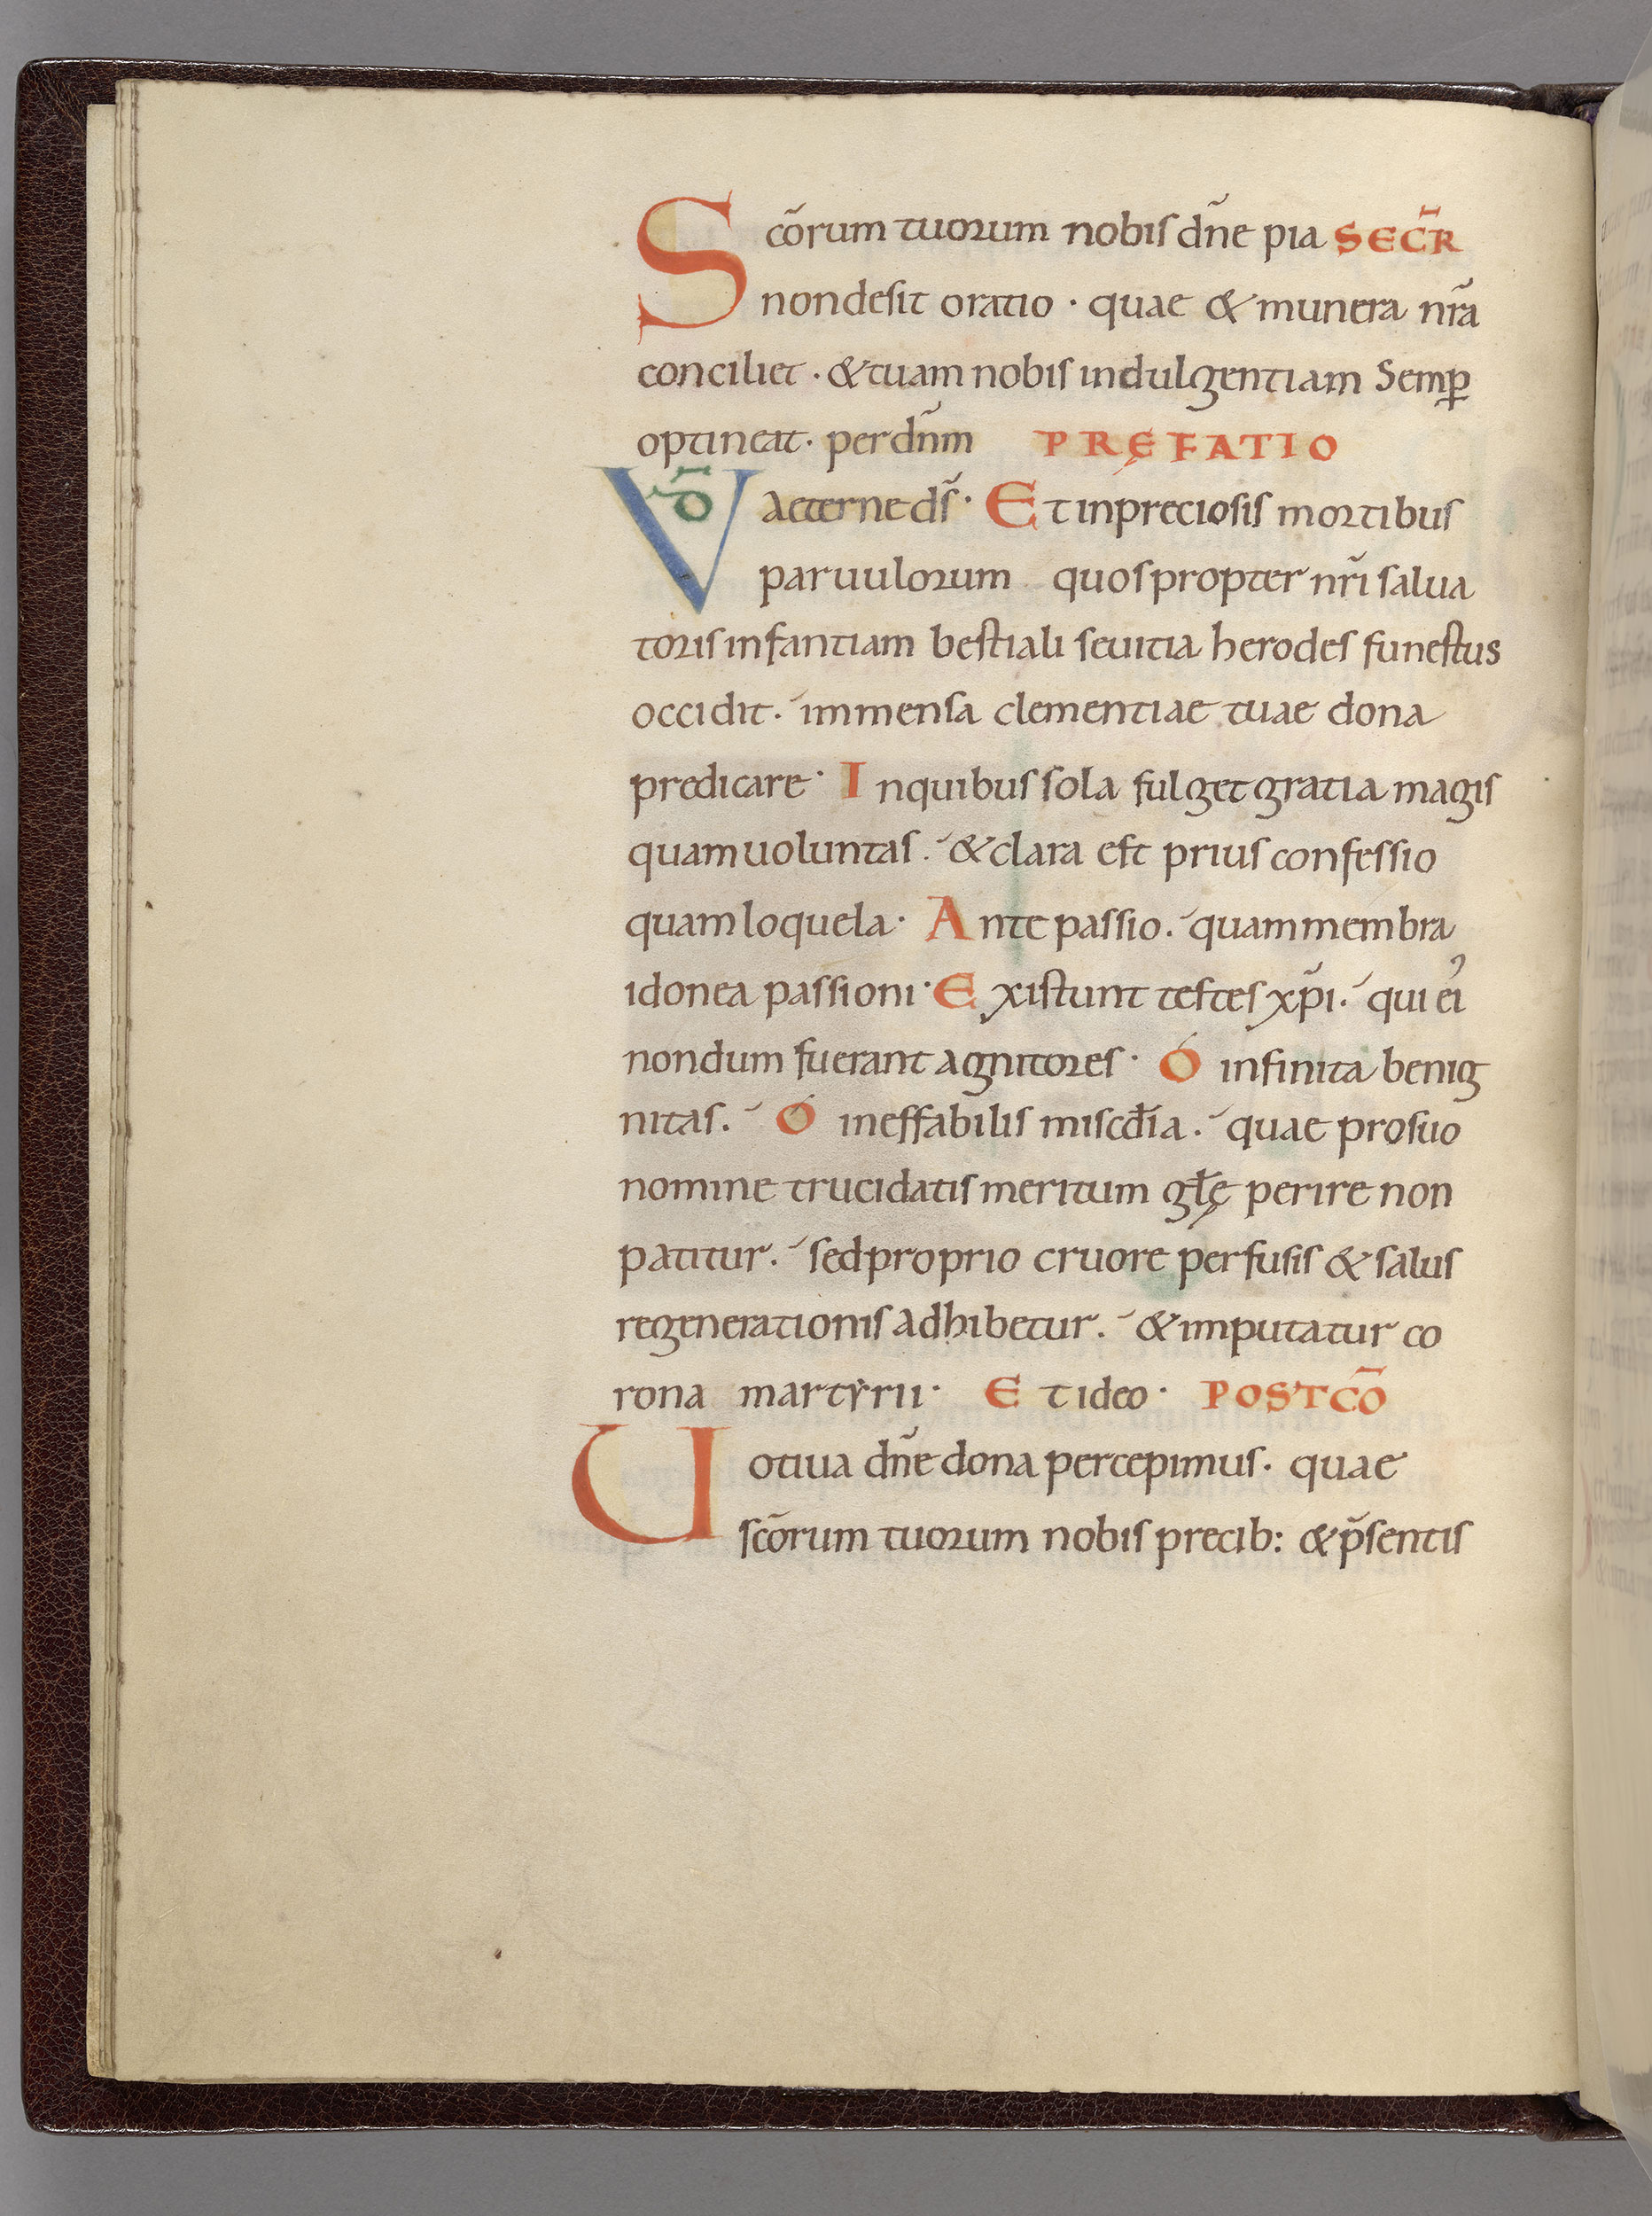 Scōrum tuorum nobis dñe pia SECR̄
non desit oratio · quae & munera nr̃a
conciliet · & tuam nobis indulgentiam Semꝑ
optineat · per dñm PRĘFATIO
VD̄ aeterne ds̃ · Et in preciosis mortibus
paruulorum quos propter nr̃i salua
toris infantiam bestiali seuitia herodes funestus
occidit · immensa clementiae tuae dona
predicare · In quibus sola fulget gratia magis
quam uoluntas · & clara est prius confessio
quam loquela · Ante passio · quam membra
idonea passioni · Existunt testes xp̃i · qui ei'
nondum fuerant agnitores · Ó infinita benig
nitas · Ó ineffabilis misc̄dia · quae pro suo
nomine trucidatis meritum gl̄ę perire non
patitur · sed proprio cruore perfusis & salus
regenerationis adhibetur · & imputatur co
rona martyrii · Et ideo · POSTCŌ
Uotiua dñe dona percepimus · quae
scōrum tuorum nobis precib: & p̃sentis